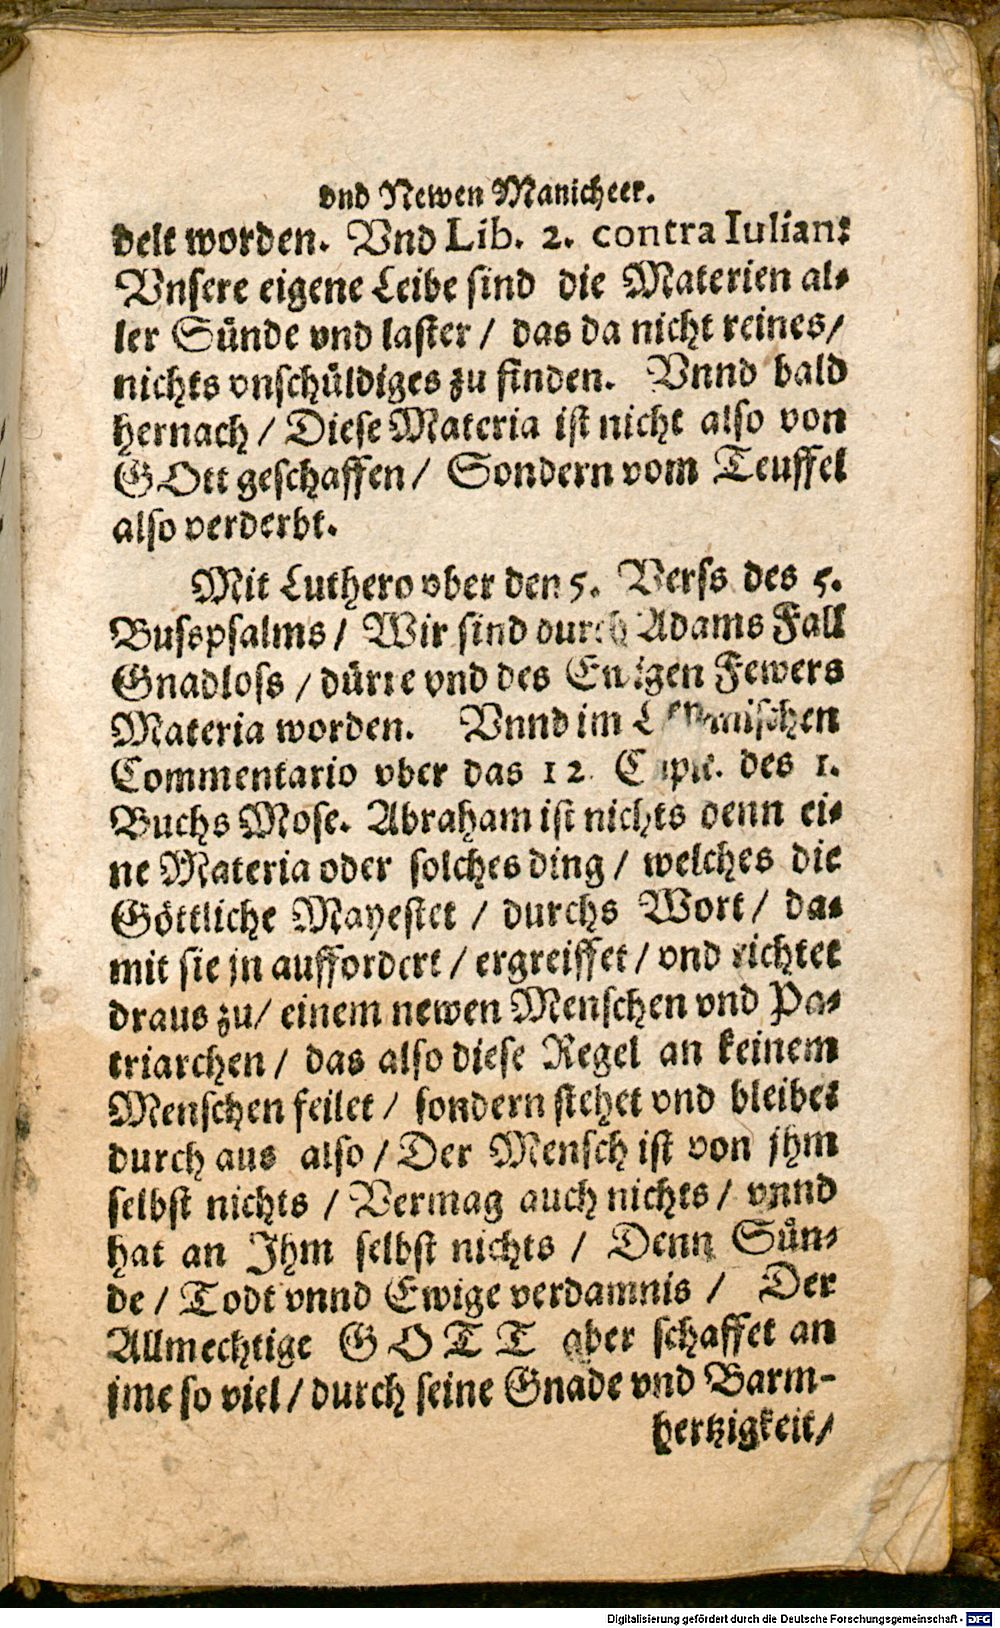 vnd Newen Manicheer.
delt worden. Vnd Lib. 2. contra Iulian:
Vnsere eigene Leibe sind die Materien al-
ler Sünde vnd laster / das da nicht reines/
nichts vnschüldiges zu finden. Vnnd bald
hernach / Diese Materia ist nicht also von
GOtt geschaffen/ Sondern vom Teuffel
also verderbt.
Mit Luthero vber den 5. Verss des 5.
Busspsalms / Wir sind durch Adams Fall
Gnadloss / dürre vnd des Ewigen Fewers
Materia worden. Vnnd im
Commentario vber das 12. Capit. des 1.
Buchs Mose. Abraham ist nichts denn ei-
ne Materia oder solches ding / welches die
Göttliche Mayestet / durchs Wort / da-
mit sie jn auffordert / ergreiffet / vnd richtet
draus zu/ einem newen Menschen vnd Pa-
triarchen / das also diese Regel an keinem
Menschen feilet / sondern stehet vnd bleibet
durch aus also / Der Mensch ist von jhm
selbst nichts / Vermag auch nichts / vnnd
hat an Ihm selbst nichts / Denn Sün-
de / Todt vnnd Ewige verdamnis / Der
Allmechtige GOTT aber schaffet an
jme so viel / durch seine Gnade vnd Barm-
hertzigkeit/
Digitalisierung gefördert durch die Deutsche Forschungsgemeinschaft - DFG